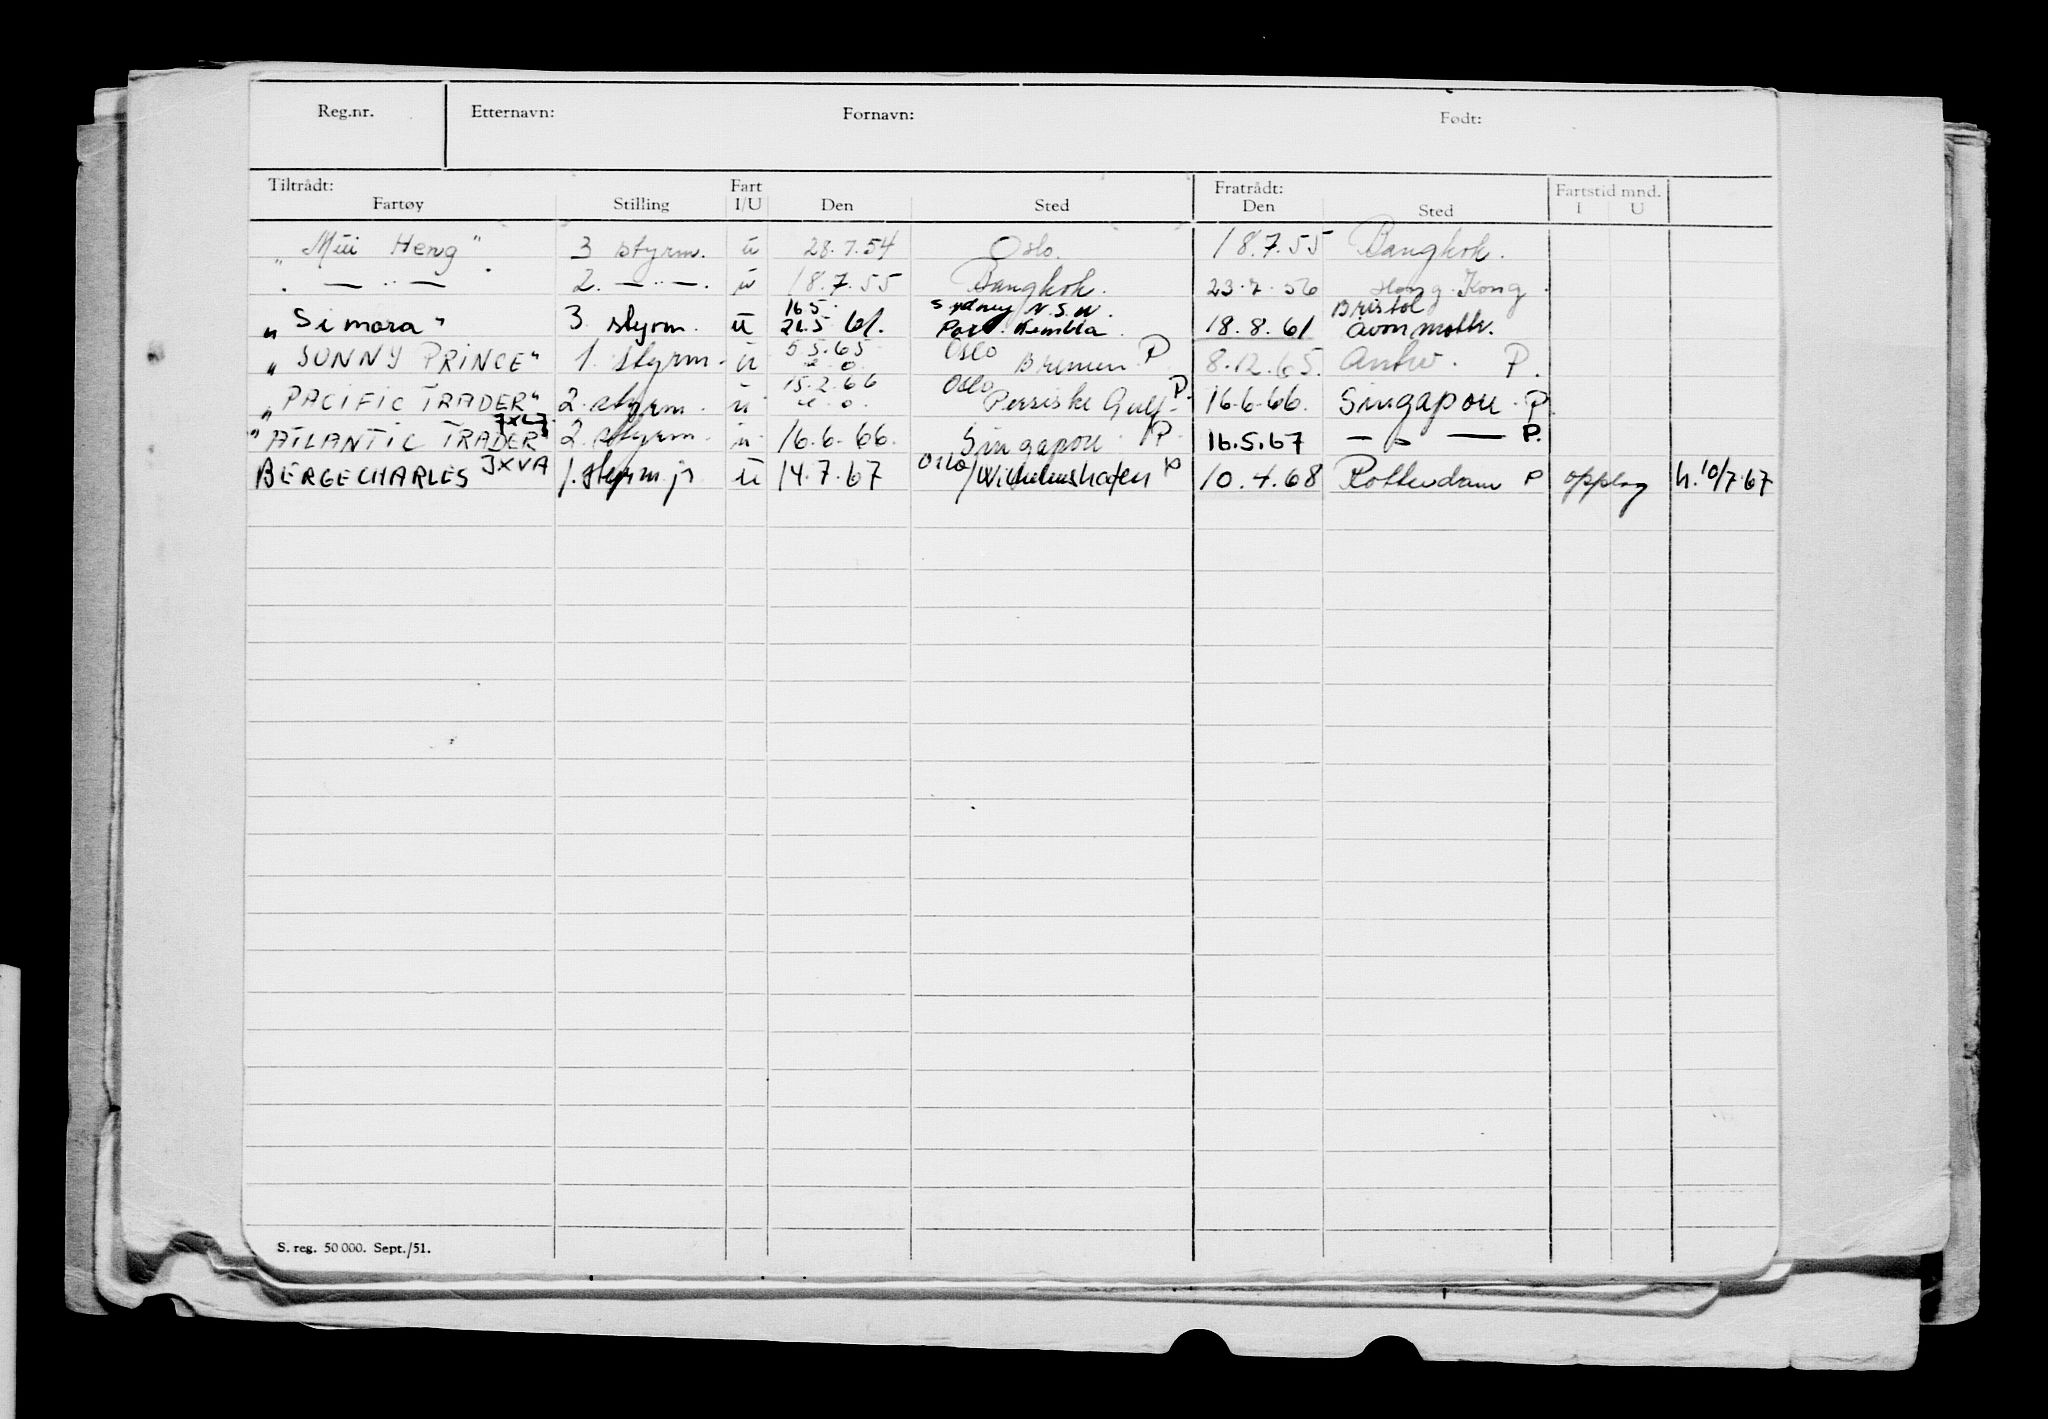 Reg.nr. Etternavn: Fornavn: Født:
Tiltrådt: Fart Fratrådt: Fartstid mnd.
Fartøy Stilling I/U Den Sted Den Sted I U
„Mui Heng" 3 styrm. u 28.7.54 Oslo. 18.7.55 Bangkok.
„ — „ — 2. — „ — . u 18.7.55 Bangkok. 23.7.56 Hong Kong.
16.5. Sydney N.S.W. Bristol
„Simara" 3 styrm. u 21.5 61. Port. Kembla. 18.8.61 Avonmoth.
5.5.65 Oslo
„SUNNY PRINCE" 1. styrm. u Bremen P 8.12.65. Antw. P.
15.2.66 Oslo P.
„PACIFIC TRADER" 2. styrm. u Persiske Gulf. 16.6.66. Singapore. P.
„ATLANTIC TRADER" 2. styrm. u 16.6.66. Singapore. P. 16.5.67 — „ — P.
BERGECHARLES JXVA 1. styrm. jr u 14.7.67 Oslo/Wilhelmshafen P 10.4.68 Rotterdam P opplag h. 10/7.67
S. reg. 50 000. Sept./51.